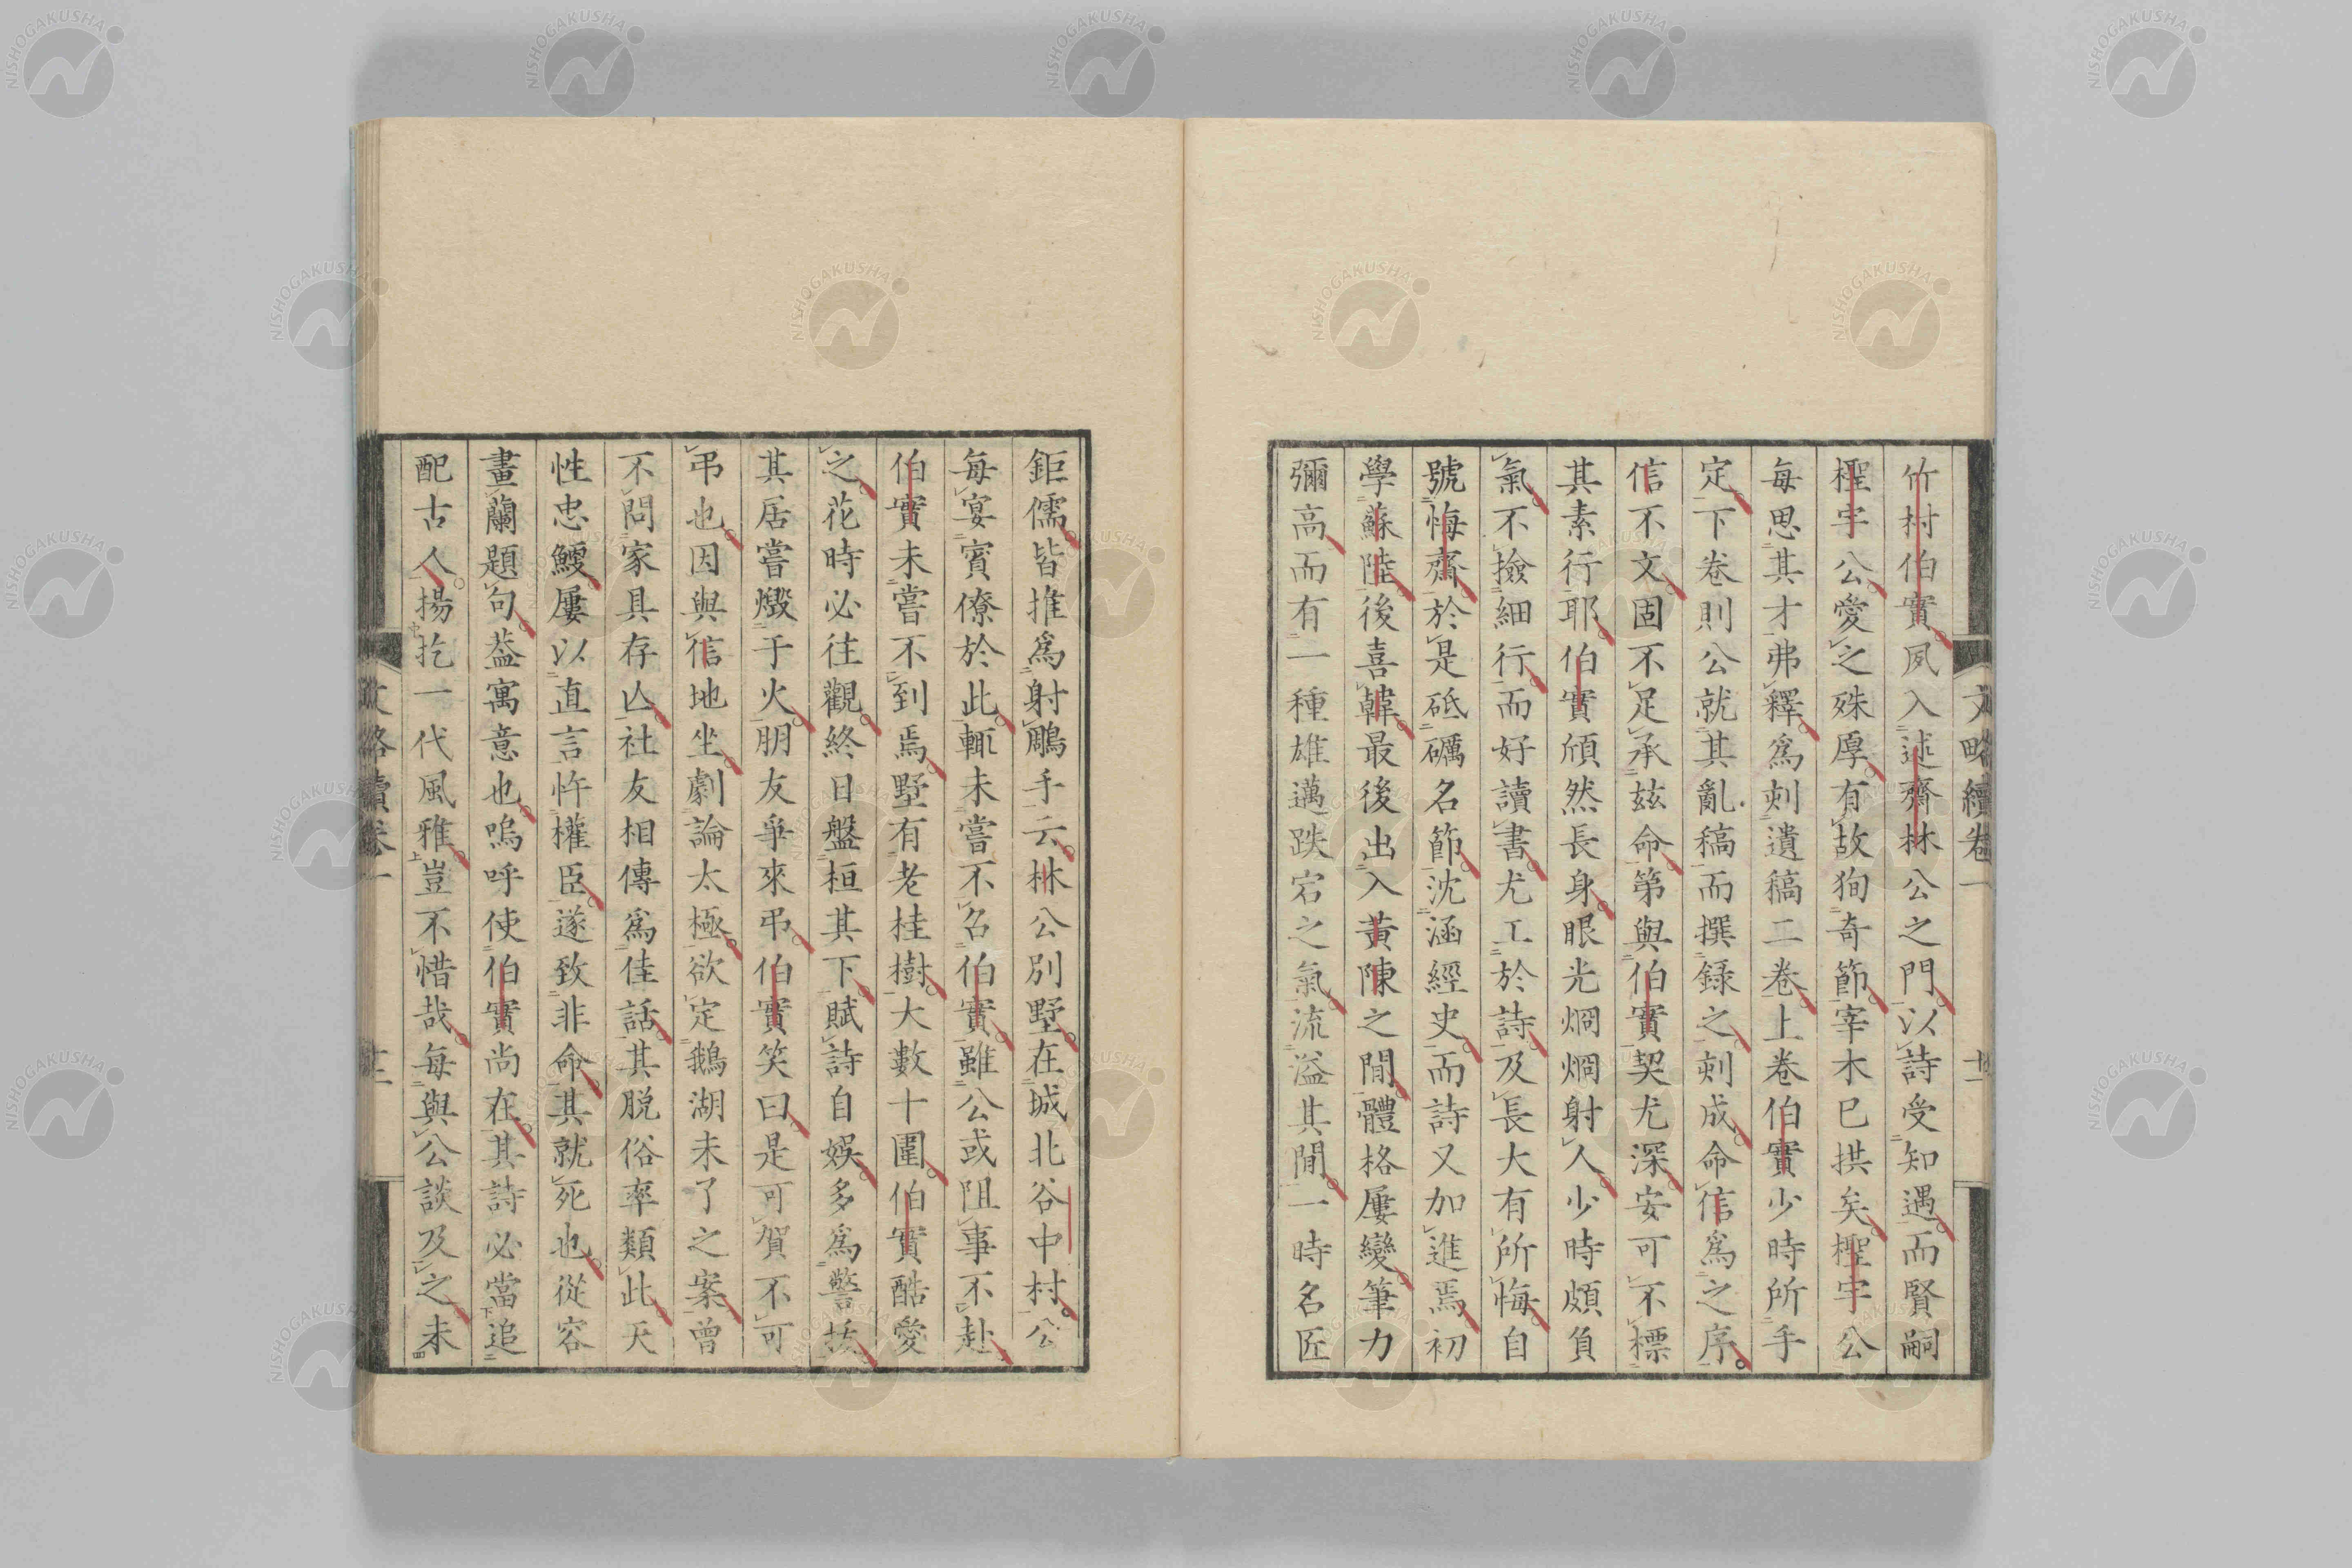 竹村伯實夙入述齋林公之門以詩受知遇而賢嗣
檉宇公愛之殊厚有故狥奇節宰木巳拱矣檉宇公
每思其才弗釋爲刻遺稿二卷上卷伯實少時所手
定下卷則公就其亂稿而撰録之刻成命信爲之序
信不文固不足承玆命第與伯實契尤深安可不標
其素行耶伯實頎然長身眼光烱烱射人少時頗負
氣不撿細行而好讀書尤工於詩及長大有所悔自
號悔齋於是砥礪名節沈涵經史而詩又加進焉初
學蘇陸後喜韓最後出入黃陳之閒體格屢變筆力
彌高而有一種雄邁跌宕之氣流溢其閒一時名匠
文略續卷一
鉅儒皆推爲射鵰手云林公別墅在城北谷中村公
每宴賓僚於此輒未嘗不召伯實雖公或阻事不赴
伯實未嘗不到焉墅有老桂樹大數十圍伯實酷愛
之花時必往觀終日盤桓其下賦詩自娛多爲警拔
其居嘗燬于火朋友爭來弔伯實笑曰是可賀不可
弔也因與信地坐劇論太極欲定鵝湖未了之案曾
不問家具存亾社友相傳爲佳話其脱俗率類此天
性忠鯁屢以直言忤權臣遂致非命其就死也從容
畫蘭題句葢寓意也嗚呼使伯實尚在其詩必當追
配古人揚扢一代風雅豈不惜哉每與公談及之未
文略續卷一